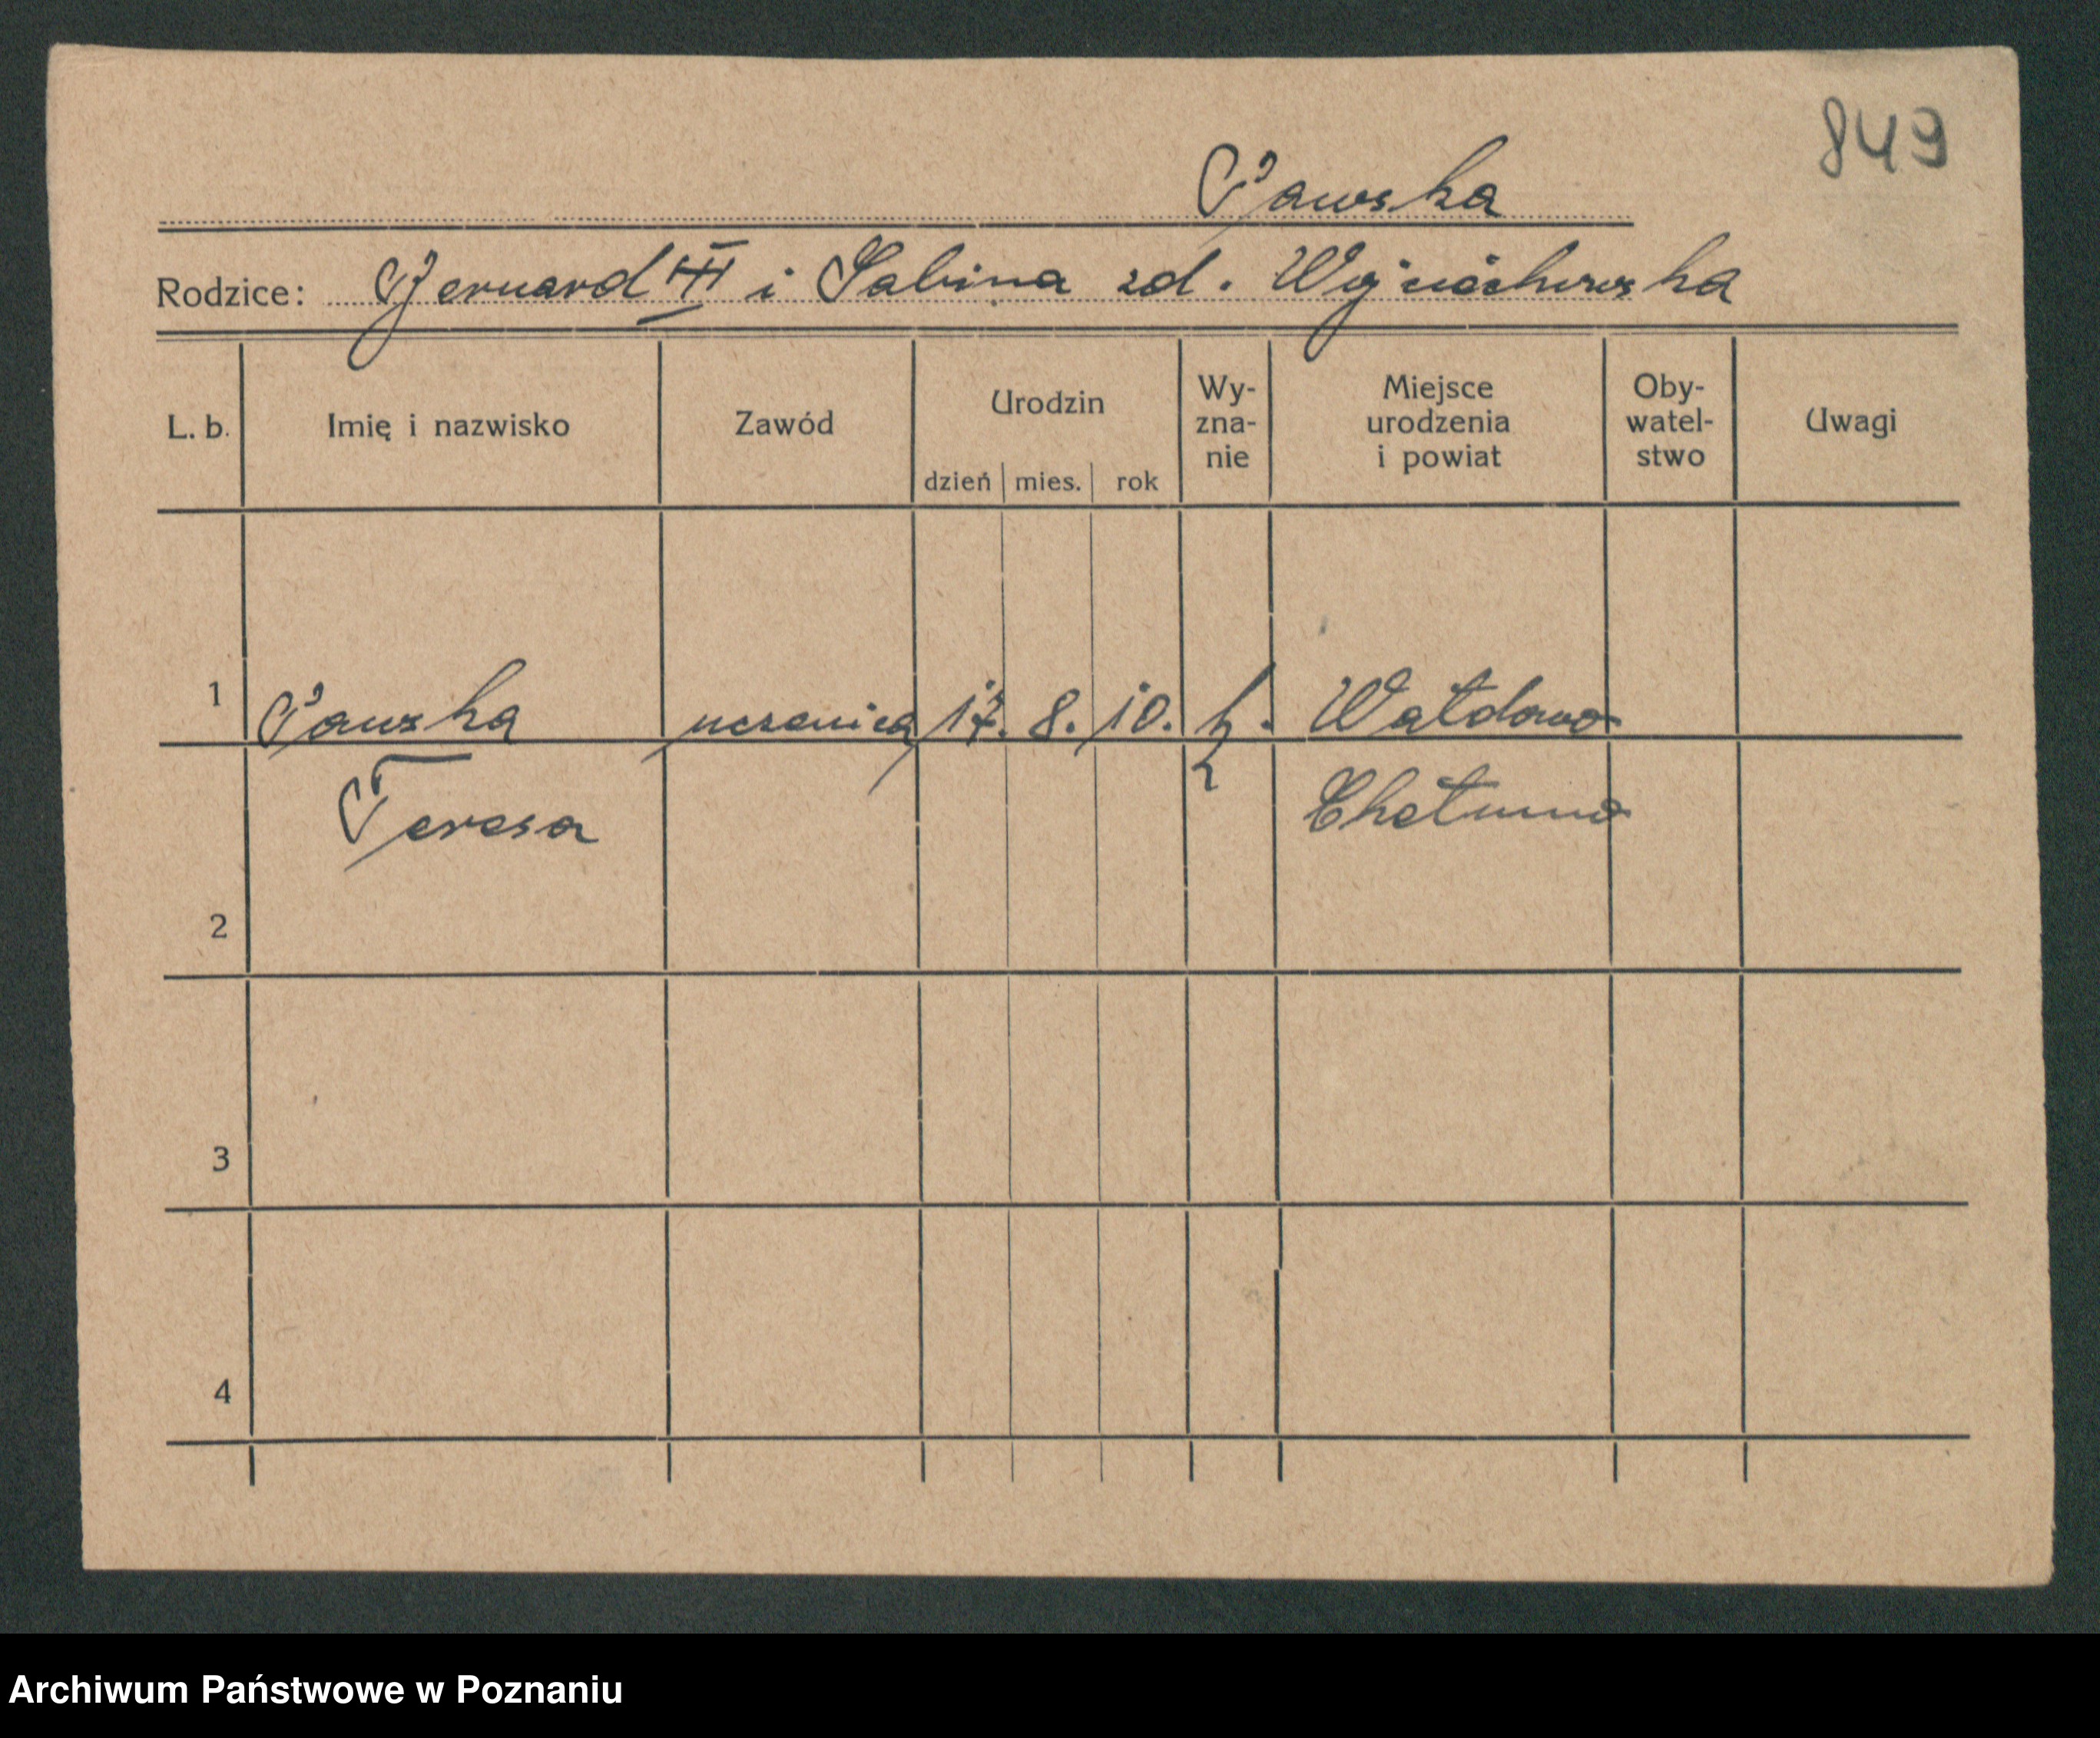 849
Pawska
Rodzice: Bernard III i Sabina zd. Wojciechowska
L. b. Imię i nazwisko Zawód Urodzin dzień mies. rok Wy-zna-nie Miejsce urodzenia i powiat Oby-watel-stwo Uwagi
1 Pawska uczenica 17. 8. 10. k. Wałdowo
Teresa Chełmno
2
3
4
Archiwum Państwowe w Poznaniu